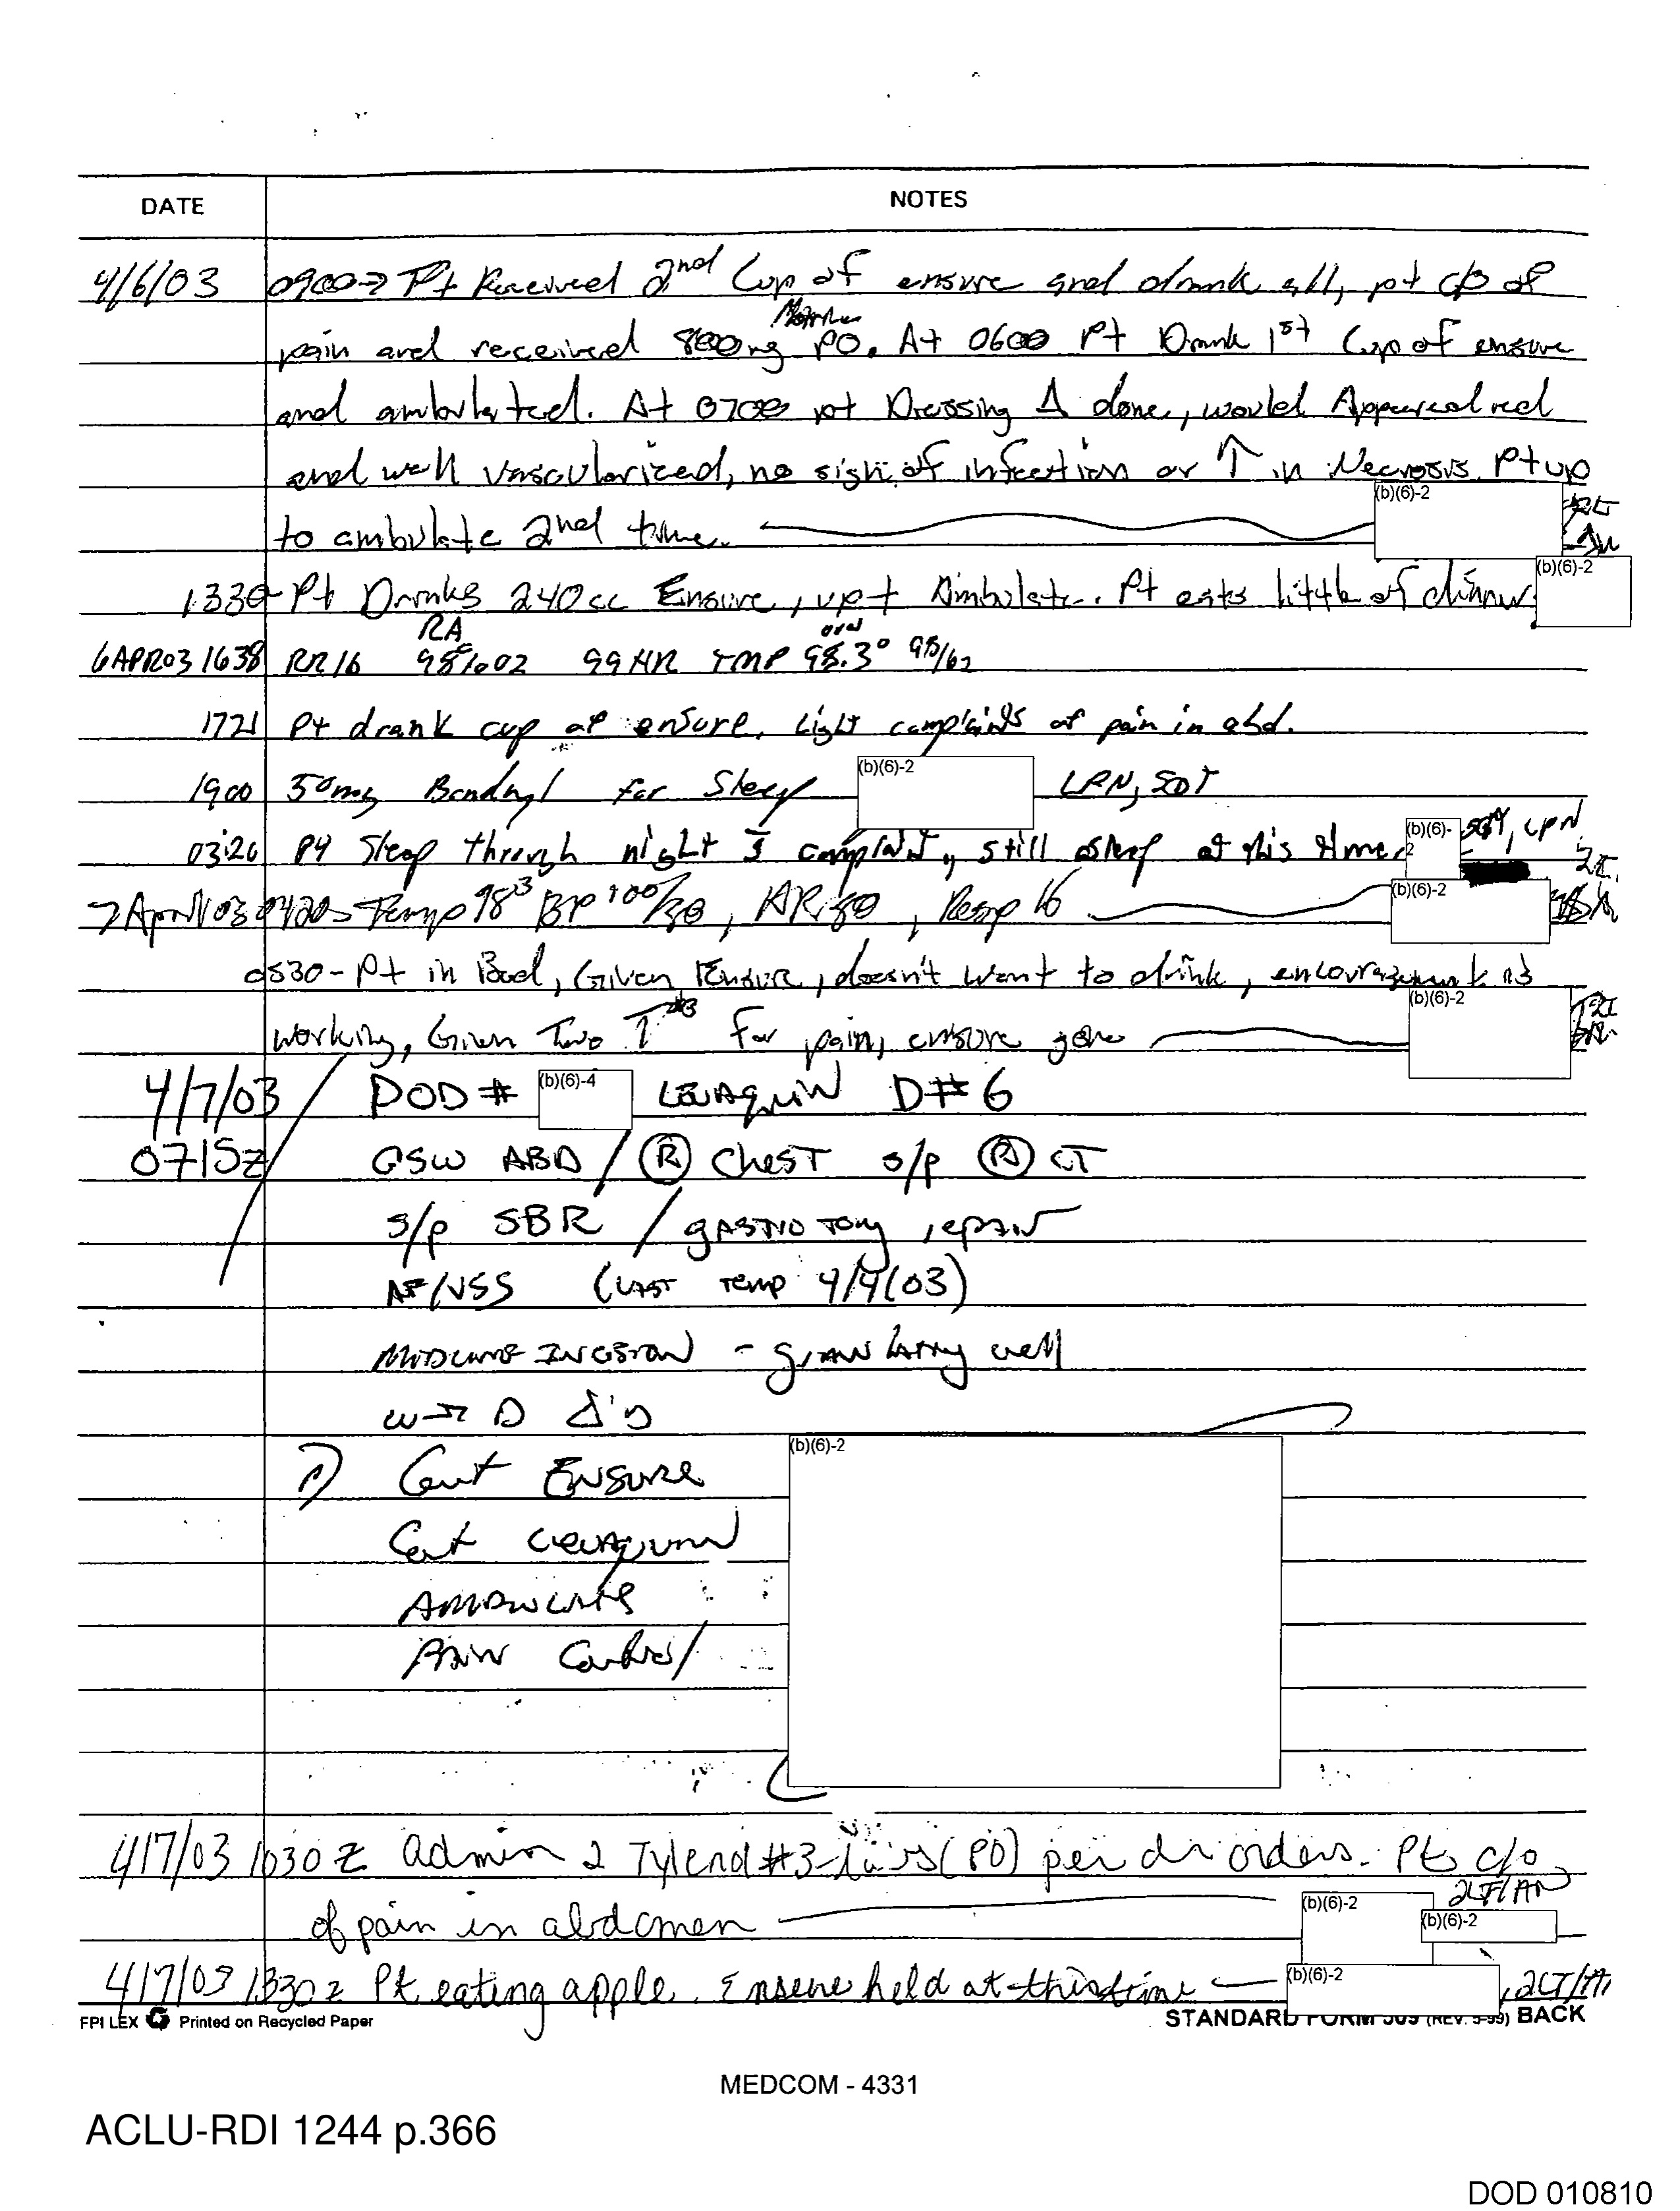 DATE NOTES
4/6/03 0900→ Pt Received 2nd Cup of ensure and drank all, pt c/o of
Motrin
pain and received 800mg PO. At 0600 Pt Drank 1st Cup of ensure
and ambulated. At 0700 pt Dressing Δ done, would Appeared red
and well vascularized, no sign of infection or ↑ in Necrosis. Pt up
(b)(6)-2
to ambulate 2nd time.
1330- Pt Drinks 240cc Ensure, up + Ambulate. Pt eats little of dinner. (b)(6)-2
RA oral
6APR03 1638 RR 16 98% O2 99 HR TMP 98.3° 98/62
1721 Pt drank cup of ensure. Light complaints of pain in abd.
1900 50mg Bendryl for Sleep (b)(6)-2 LPN, SGT
0320 Pt Sleep through night s̄ complaint, still asleep at this time. (b)(6)-2 SGT, LPN
7 April 03 0420- Temp 98³ BP 100/50, HR 80, Resp 16 (b)(6)-2
0530- Pt in Bed, Given Ensure, doesn't want to drink, encouragement is
working, Given Two T#3 for pain, ensure gone (b)(6)-2
4/7/03 / POD # (b)(6)-4 LEVAQUIN D#6
0715z GSW ABD / Ⓡ CHEST s/p Ⓡ CT
s/p SBR / gastrotomy repair
AF/VSS (LAST TEMP 4/4/03)
MIDLINE INCISION - granulating well
W→D Δ's
P) Cont ENSURE (b)(6)-2
Cont LEVAQUIN
AMBULATE
PAIN Control
4/7/03 1030z Admin 2 Tylenol #3 (PO) per dr orders. Pt c/o
of pain in abdomen (b)(6)-2 2LT/AN (b)(6)-2
4/7/03 1330z Pt eating apple. Ensure held at this time (b)(6)-2, 2LT/AN
FPI LEX Printed on Recycled Paper STANDARD FORM 509 (REV. 5-99) BACK
MEDCOM - 4331
ACLU-RDI 1244 p.366
DOD 010810